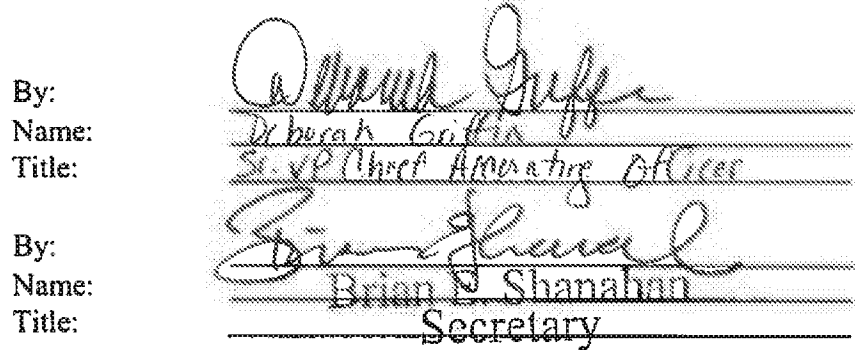 By:
Name: Deborah Griffin
Title: Sr. VP Chief Officer
By:
Name: Brian Shanahan
Title: Secretary